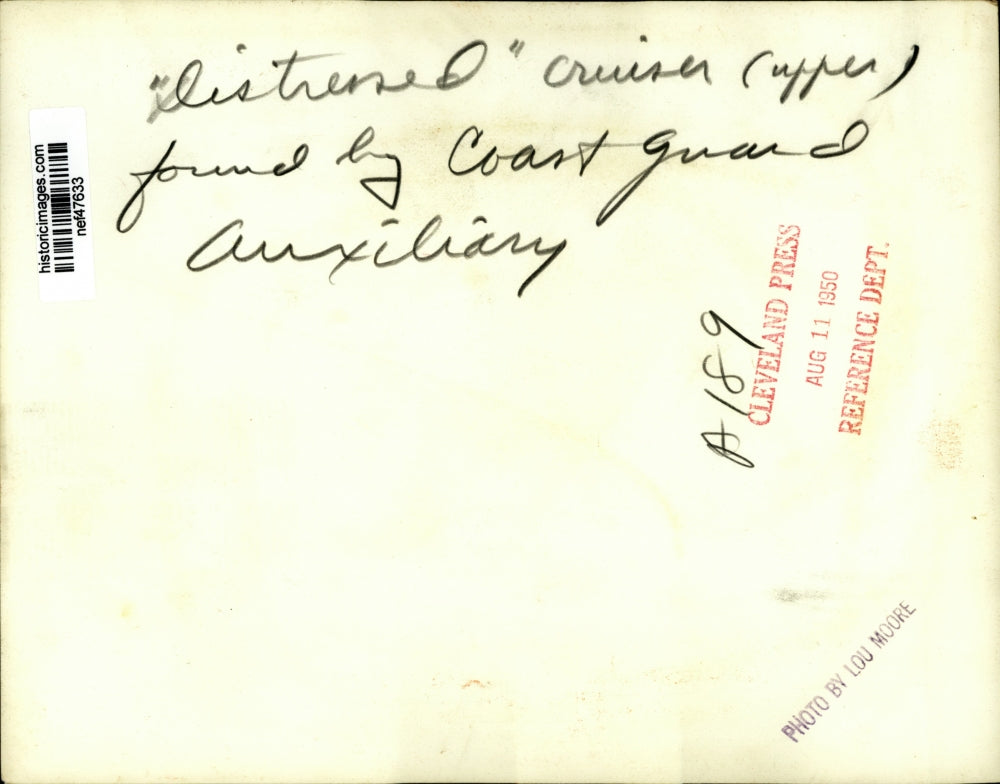 "Distressed" cruiser (upper)
found by Coast Guard
Auxiliary
historicimages.com
nef47633
A189
CLEVELAND PRESS
AUG 11 1950
REFERENCE DEPT.
PHOTO BY LOU MOORE